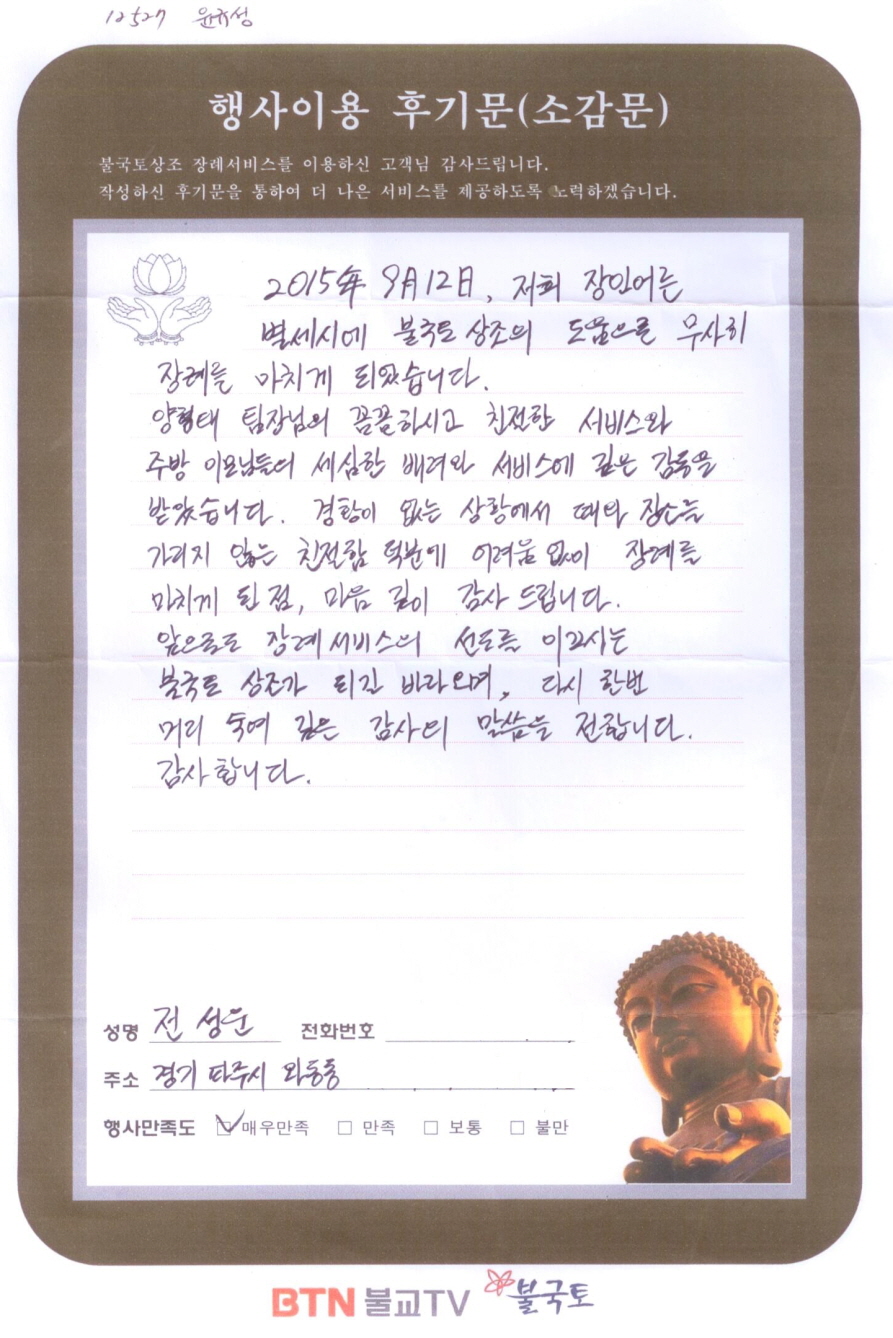 12527 윤규성
행사이용 후기문(소감문)
불국토상조 장례서비스를 이용하신 고객님 감사드립니다.
작성하신 후기문을 통하여 더 나은 서비스를 제공하도록 노력하겠습니다.
2015年 9月 12日, 저희 장인어른
별세시에 불국토 상조의 도움으로 무사히
장례를 마치게 되었습니다.
양형태 팀장님의 꼼꼼하시고 친절한 서비스와
주방 이모님들의 세심한 배려와 서비스에 깊은 감동을
받았습니다. 경황이 없는 상황에서 때와 장소를
가리지 않는 친절함 덕분에 어려움 없이 장례를
마치게 된 점, 마음 깊이 감사 드립니다.
앞으로도 장례서비스의 선도를 이끄시는
불국토 상조가 되길 바라오며, 다시 한번
머리 숙여 깊은 감사의 말씀을 전합니다.
감사합니다.
성명 전 성운 전화번호
주소 경기 파주시 와동동
행사만족도 ☑ 매우만족 □ 만족 □ 보통 □ 불만
BTN 불교TV 불국토